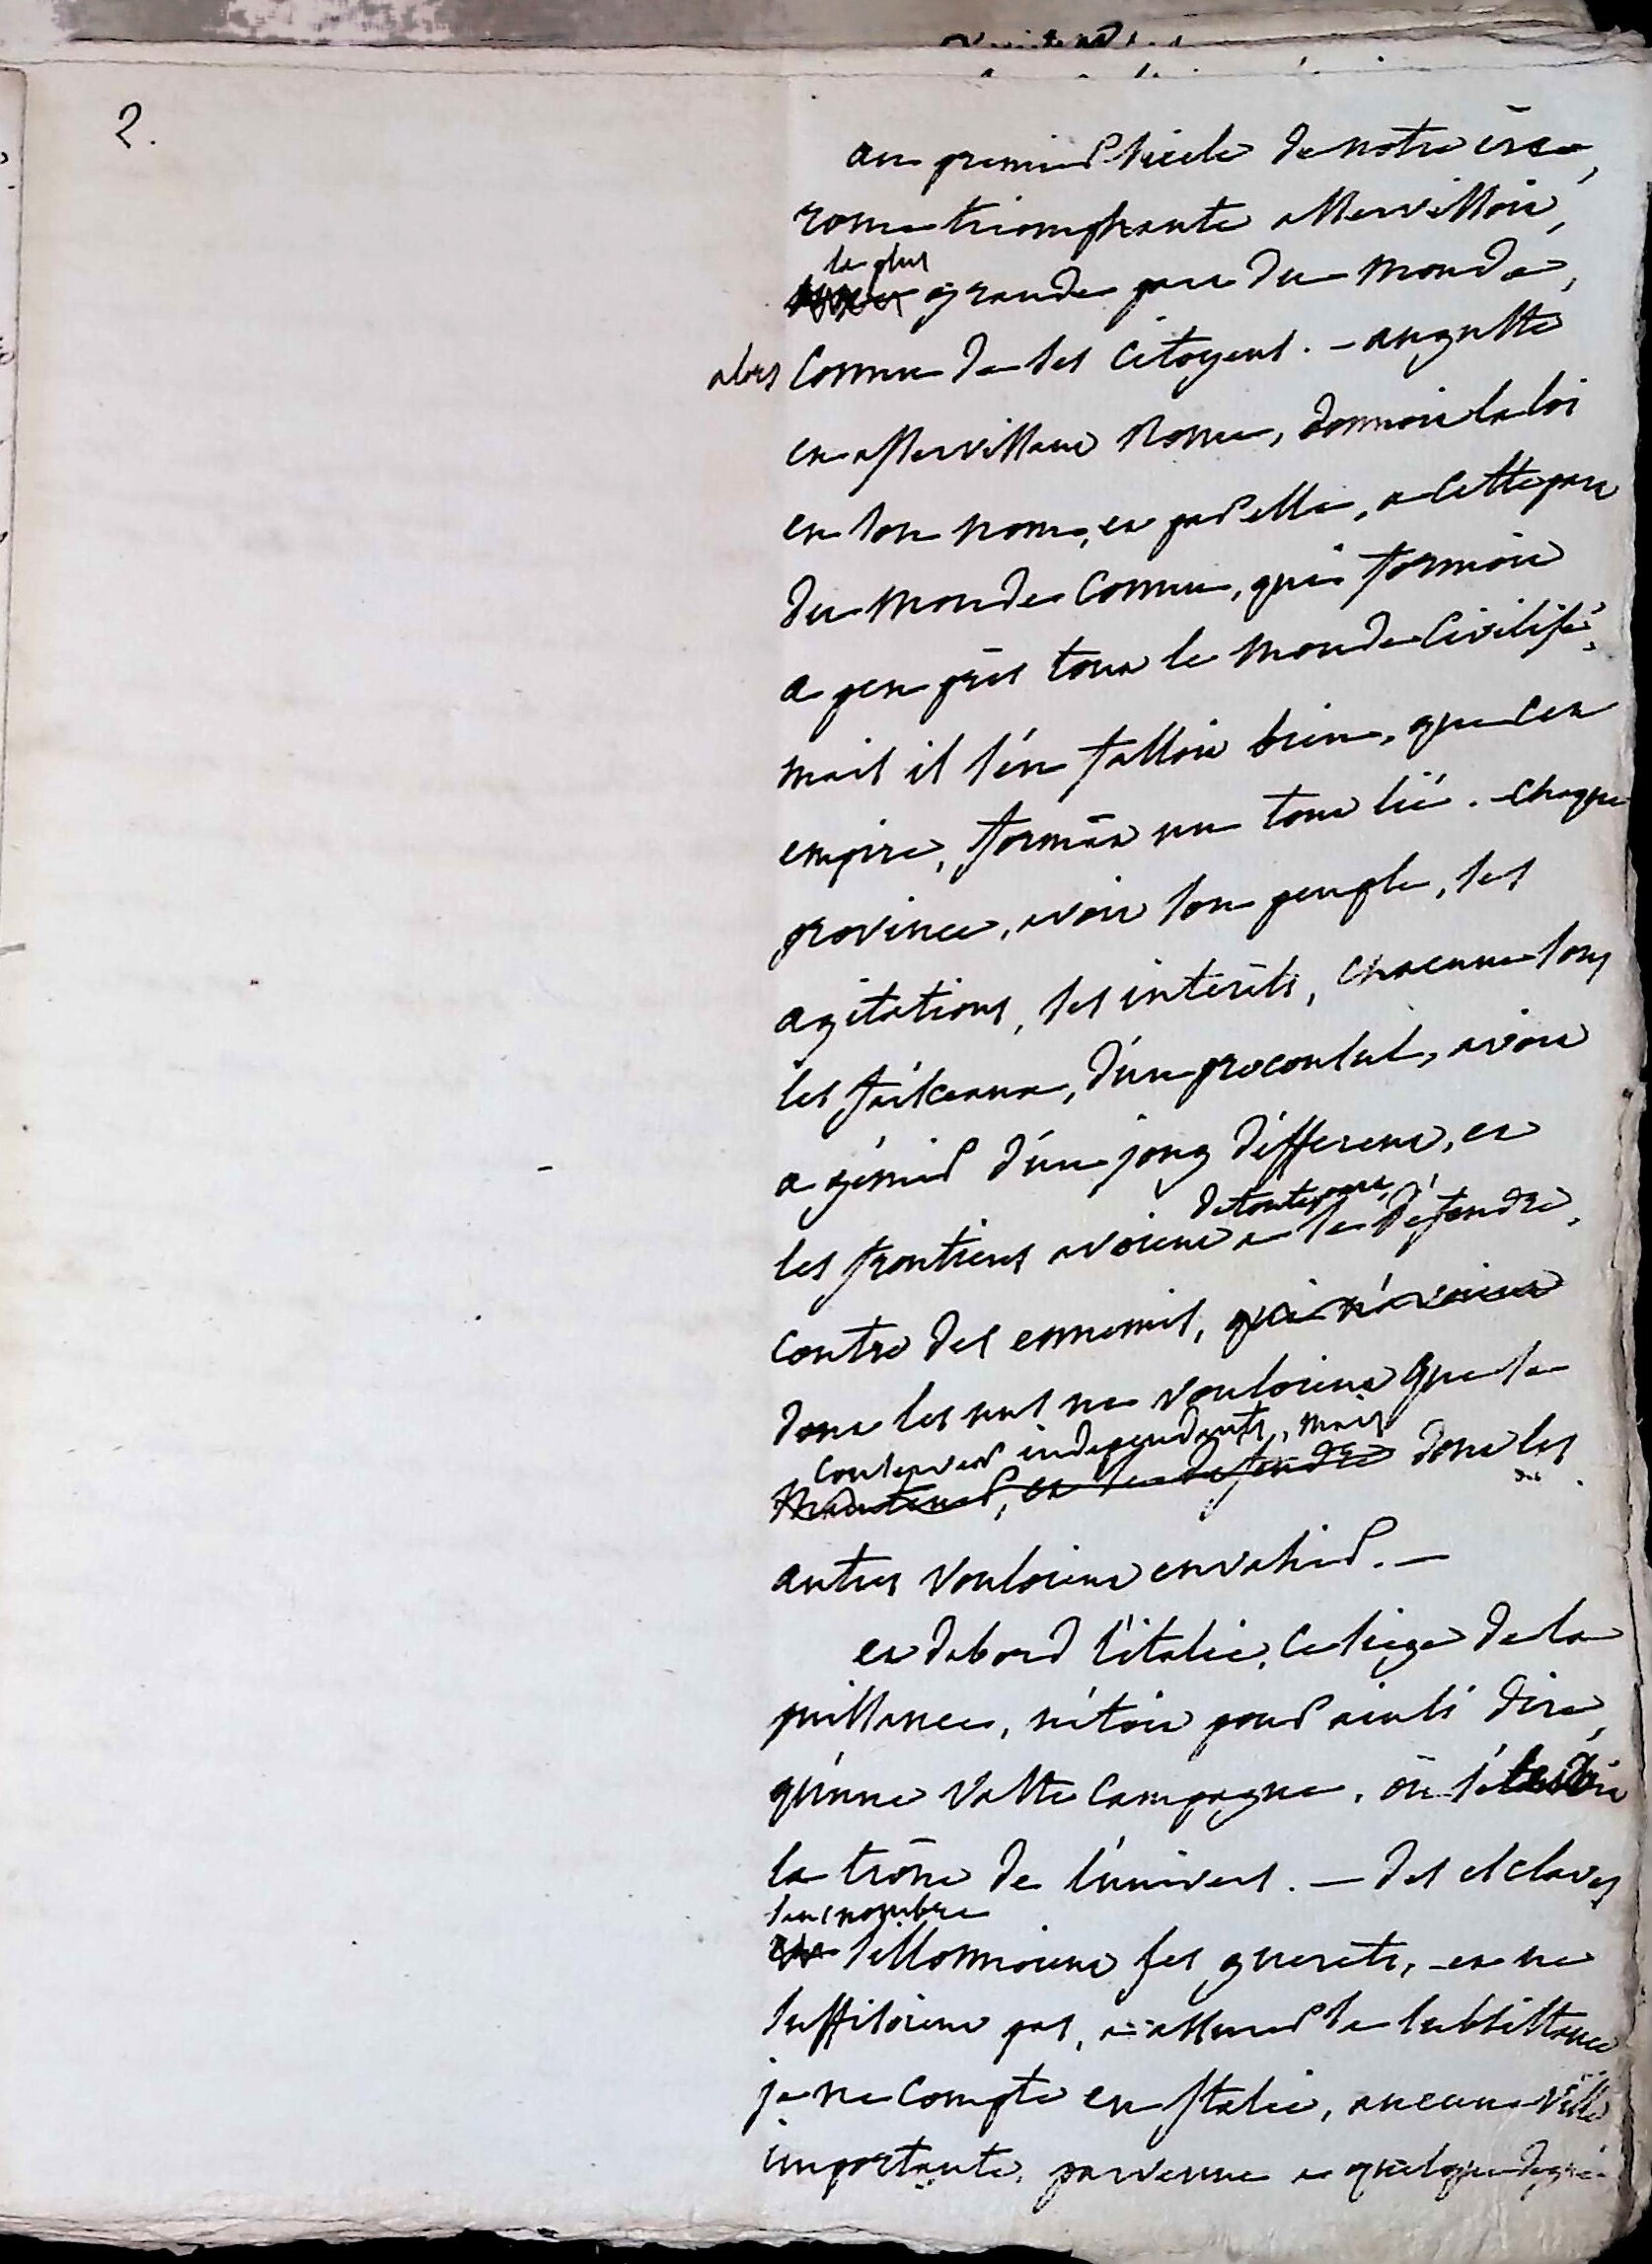 2.
au premier siecle de notre ère,
rome triomphante asservissoit,
la plus
grande part du monde,
alors connu de ses citoyens. - auguste
en asservissant Rome, donnoit la loi
en son nom, et par elle, a cette part
du monde connu, qui formoit
a peu près tout le monde civilisé,
mais il s'en falloit bien, que cet
empire, formât un tout lié. - chaque
province, avoit son peuple, ses
agitations, ses interêts, chacune sous
les faisceaux, d'un proconsul, avoit
a gémir d'un joug différent, et
les frontieres avoient a se défendre,
de toute part,
contre des ennemis, qui n'avoient
dont les uns ne vouloient que se
conserver independants, mais
maintenir, et se defendre dont les
autres vouloient envahir. -
et dabord l'italie, ce siege de la
puissance, n'étoit pour ainsi dire,
qu'une vaste campagne, où s'étendoit
le trône de l'univers. - des esclaves
sans nombre
sillonnoient ses guerets, et ne
suffisoient pas, a assurer sa subsistance
je ne compte en Italie, aucune ville
importante, parvenue a quelque degré